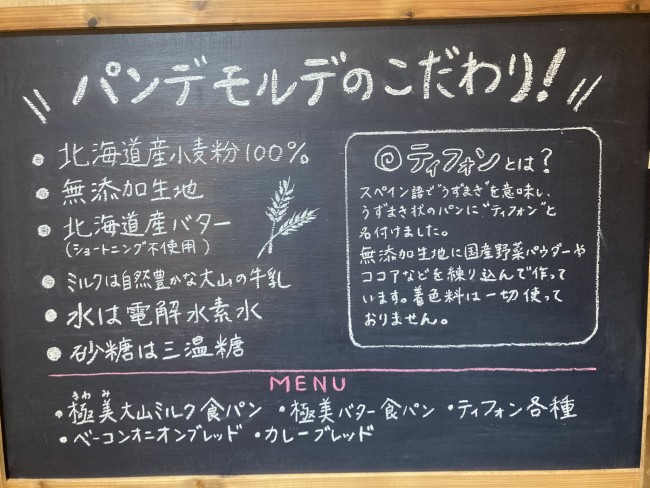 パンデモルデのこだわり!
・北海道産小麦粉100%
・無添加生地
・北海道産バター
(ショートニング不使用)
・ミルクは自然豊かな大山の牛乳
・水は電解水素水
・砂糖は三温糖
ティフォンとは?
スペイン語で"うずまき"を意味し、
うずまき状のパンに"ティフォン"と
名付けました。
無添加生地に国産野菜パウダーや
ココアなどを練り込んで作って
います。着色料は一切使って
おりません。
MENU
きわみ
・極美大山ミルク食パン ・極美バター食パン ・ティフォン各種
・ベーコンオニオンブレッド ・カレーブレッド